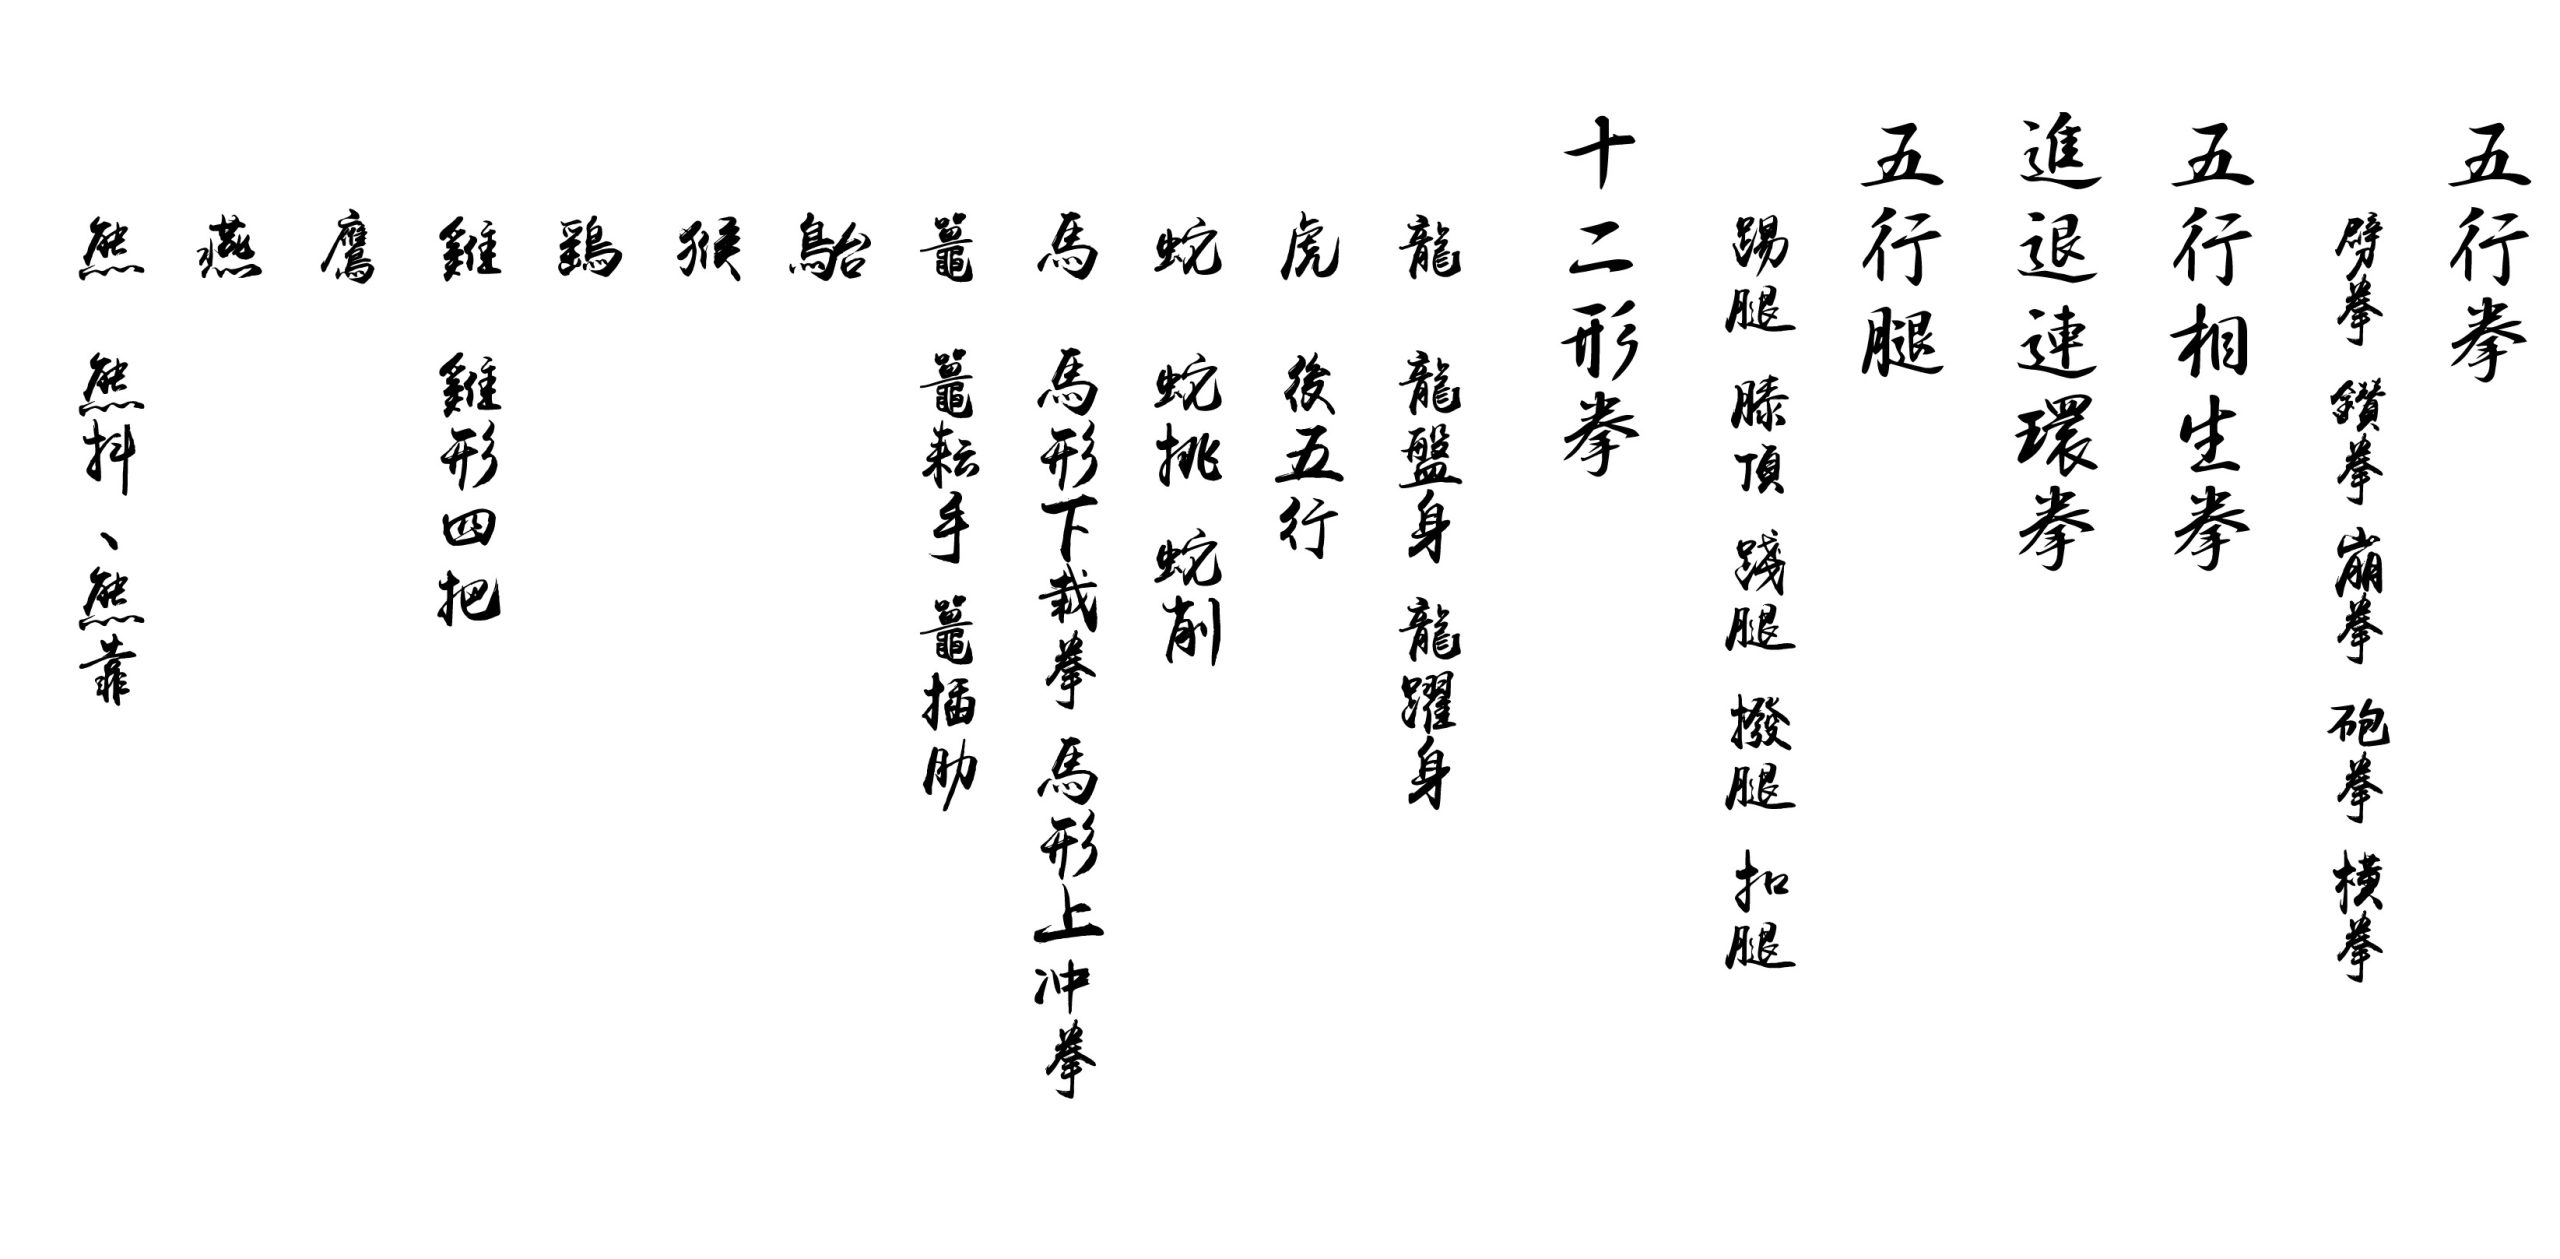 五行拳
劈拳 鑽拳 崩拳 砲拳 橫拳
五行相生拳
進退連環拳
五行腿
踢腿 膝頂 踐腿 撥腿 扣腿
十二形拳
龍 龍盤身 龍躍身
虎 後五行
蛇 蛇挑 蛇削
馬 馬形下栽拳 馬形上冲拳
鼉 鼉耘手 鼉插肋
鮐
猴
鷂
雞 雞形四把
鷹
燕
熊 熊抖、熊靠